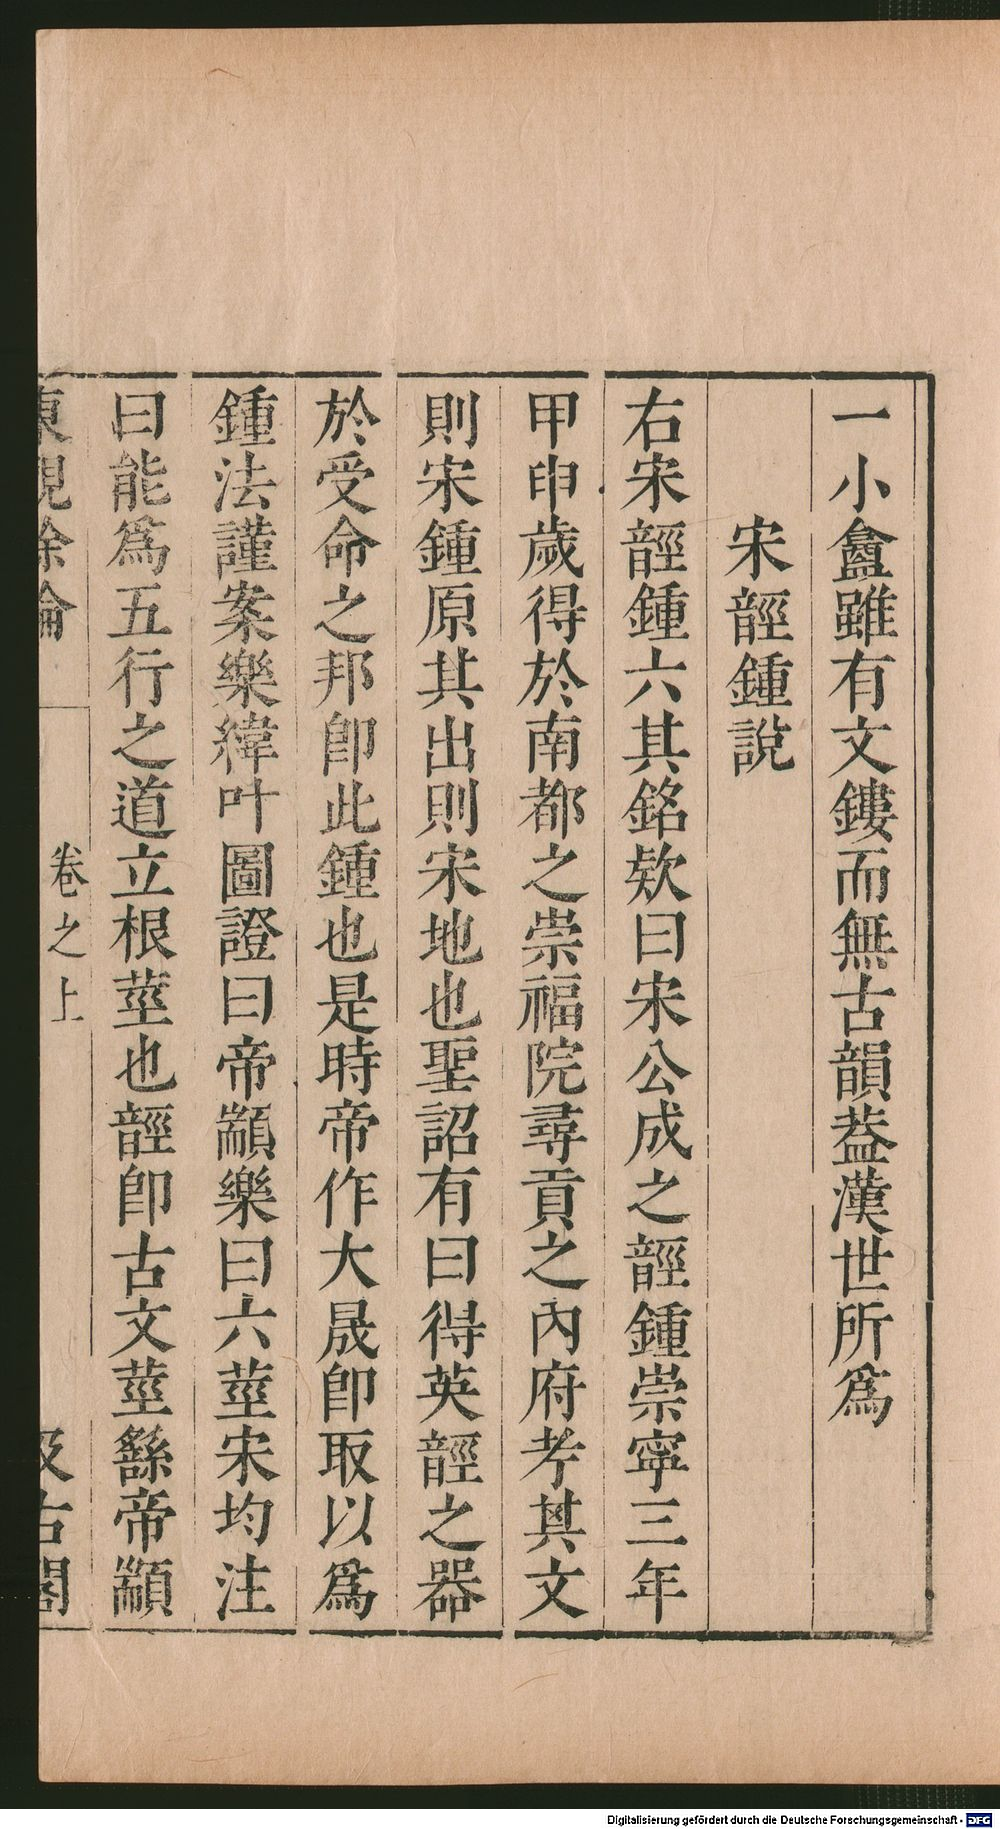 一小鑫雖有文鏤而無古韻葢漢世所爲
宋䪫鍾說
右宋䪫鍾六其銘欵曰宋公成之䪫鍾崇寧三年
甲申歲得於南都之崇福院尋貢之內府考其文
則宋鍾原其出則宋地也聖詔有曰得英䪫之器
於受命之邦卽此鍾也是時帝作大晟卽取以爲
鍾法謹案樂緯叶圖證曰帝顓樂曰六莖宋均注
曰能爲五行之道立根莖也䪫卽古文莖繇帝顓
東觀餘論
卷之上
汲古閣
Digitalisierung gefördert durch die Deutsche Forschungsgemeinschaft - DFG